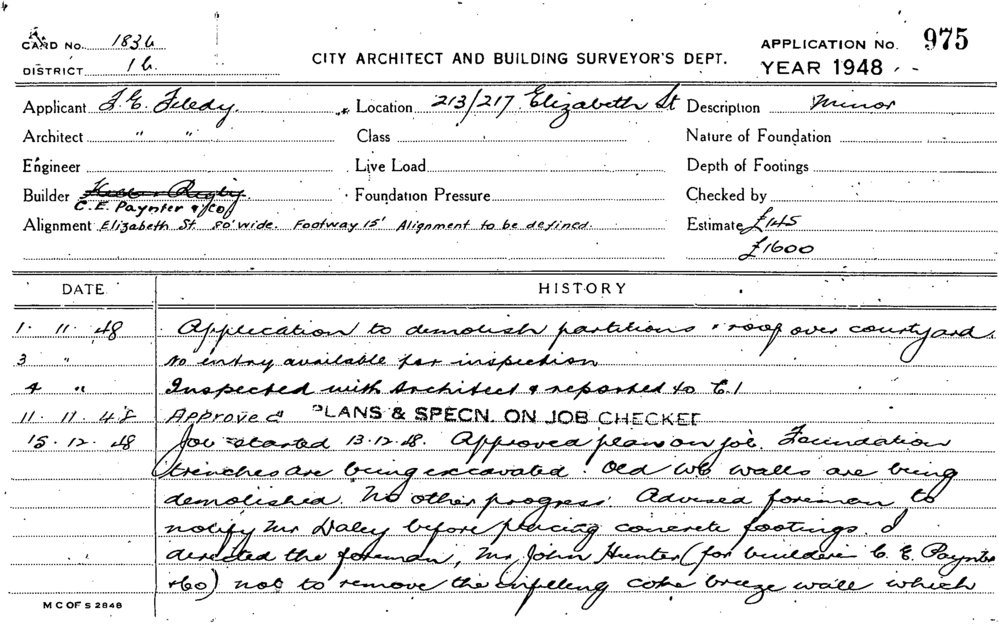 CARD No. 1836
DISTRICT 16
CITY ARCHITECT AND BUILDING SURVEYOR'S DEPT.
APPLICATION No. 975
YEAR 1948
Applicant
Location 213/217 Elizabeth St
Description Minor
Architect " "
Class
Nature of Foundation
Engineer
Live Load
Depth of Footings
Builder
C. E. Paynter & Co
Foundation Pressure
Checked by
Alignment Elizabeth St. 80' wide. Footway 15' Alignment to be defined.
Estimate £145
£1600
DATE HISTORY
1. 11. 48 Application to demolish partitions & roof over courtyard.
3 " No entry available for inspection
4 " Inspected with Architect & reported to C.I
11. 11. 48 Approved PLANS & SPECN. ON JOB CHECKED
15. 12. 48 Job started 13.12.48. Approved plan on job. Foundation
trenches are being excavated. Old WC walls are being
demolished. No other progress. Advised foreman to
notify Mr Daley before placing concrete footings. I
directed the foreman, Mr John Hunter (for builders C. E. Paynter
& Co) not to remove the infilling coke breeze wall which
M C OF S 2848